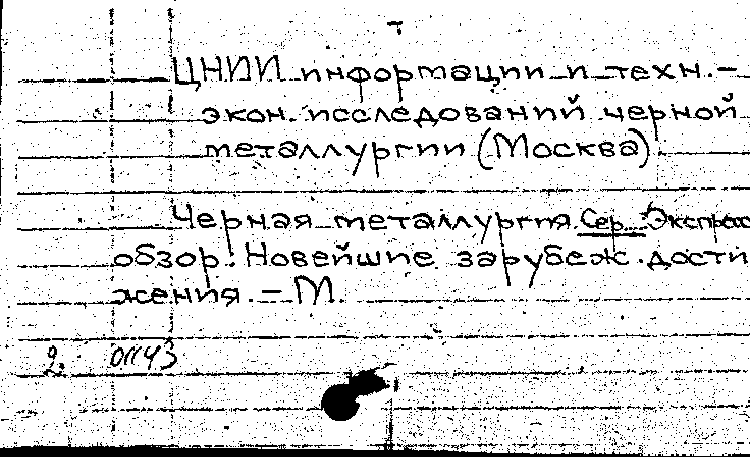 ЦНИИ информации и техн.-
экон. исследований черной
металлургии (Москва)
Черная металлургия. Сер. Экспресс
обзор: Новейшие зарубеж. дости
жения. - М.
2. 01143